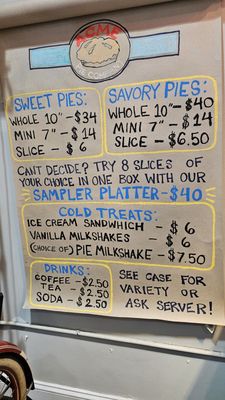 ACME
PIE COMPANY
SWEET PIES:
WHOLE 10" - $34
MINI 7" - $14
SLICE - $ 6
SAVORY PIES:
WHOLE 10" - $40
MINI 7" - $14
SLICE - $6.50
CANT DECIDE? TRY 8 SLICES OF
YOUR CHOICE IN ONE BOX WITH OUR
SAMPLER PLATTER - $40
COLD TREATS:
ICE CREAM SANDWHICH - $ 6
VANILLA MILKSHAKES - $ 6
(CHOICE OF) PIE MILKSHAKE - $7.50
DRINKS:
COFFEE - $2.50
TEA - $2.50
SODA - $2.50
SEE CASE FOR
VARIETY OR
ASK SERVER!